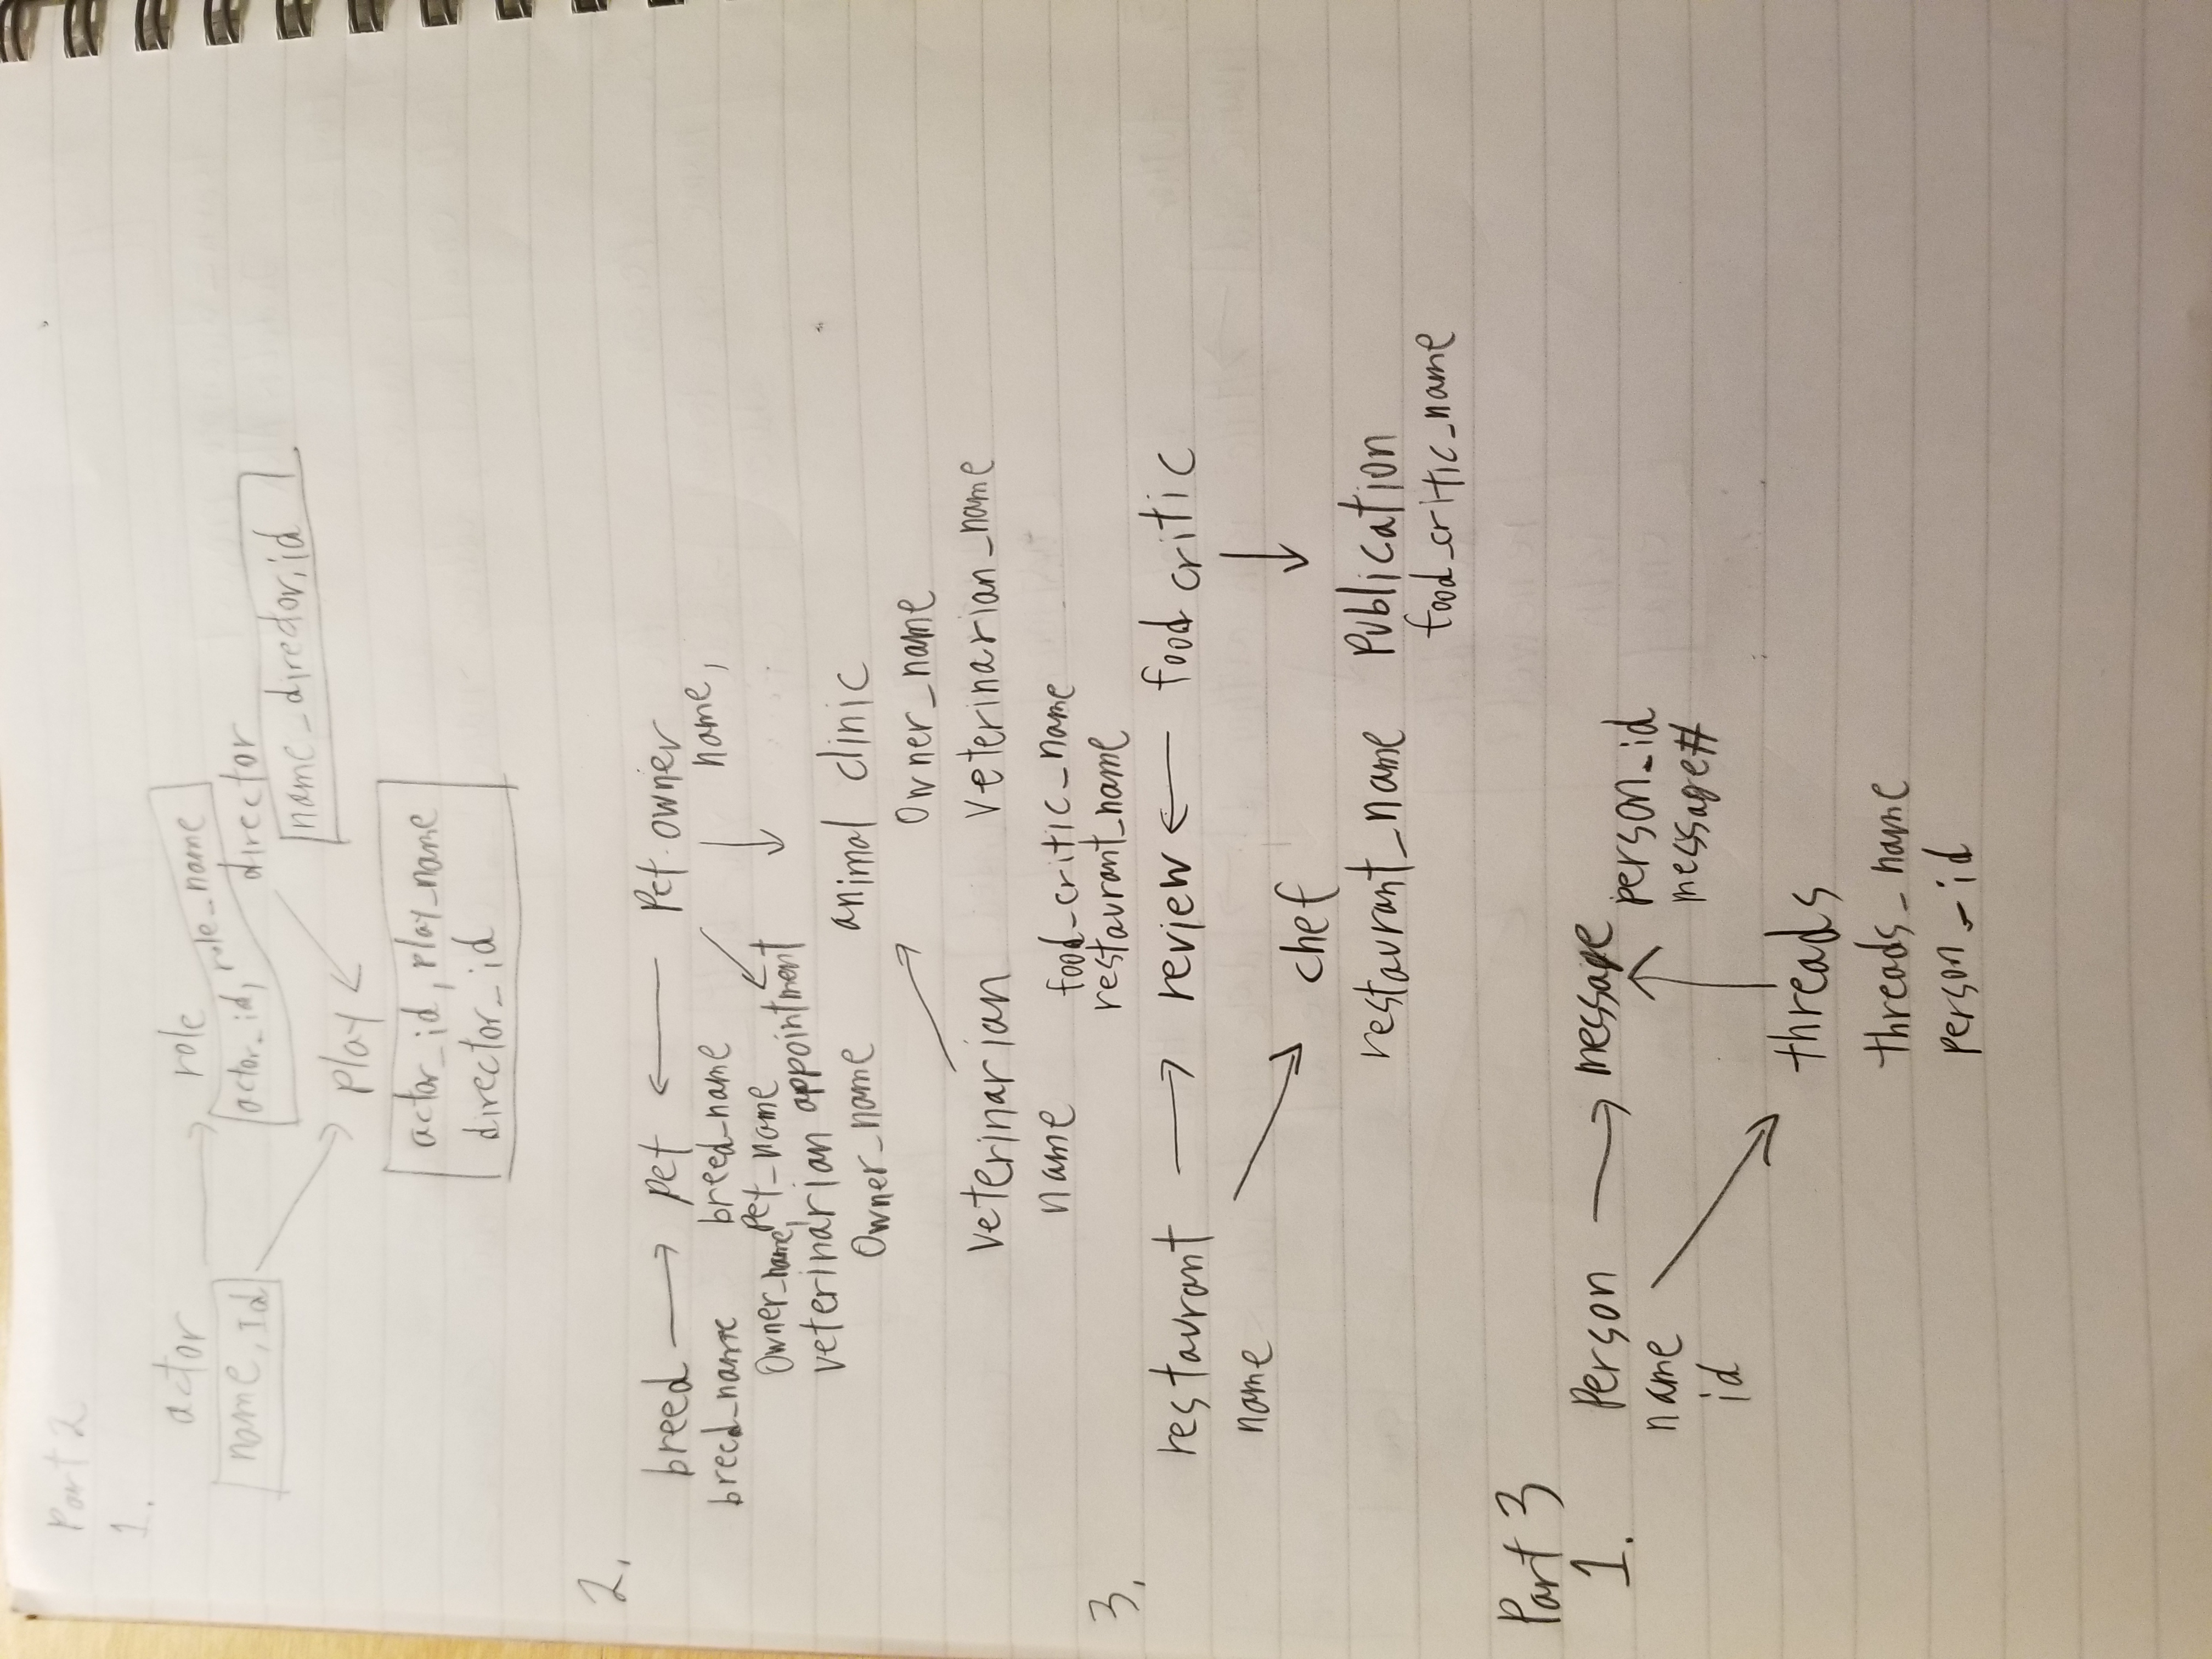 Part 2
1.
actor role
name, Id actor_id, role_name
director
name_director, id
play
actor_id, play_name
director_id
2.
breed pet Pet owner
breed_name breed_name name,
Owner_name, Pet_name
veterinarian appointment
Owner_name
animal clinic
Owner_name
veterinarian veterinarian_name
name
food_critic_name
restaurant_name
3.
restaurant review food critic
name
chef
restaurant_name
Publication
food_critic_name
Part 3
1. Person message
name person_id
id message#
threads
threads_name
person_id